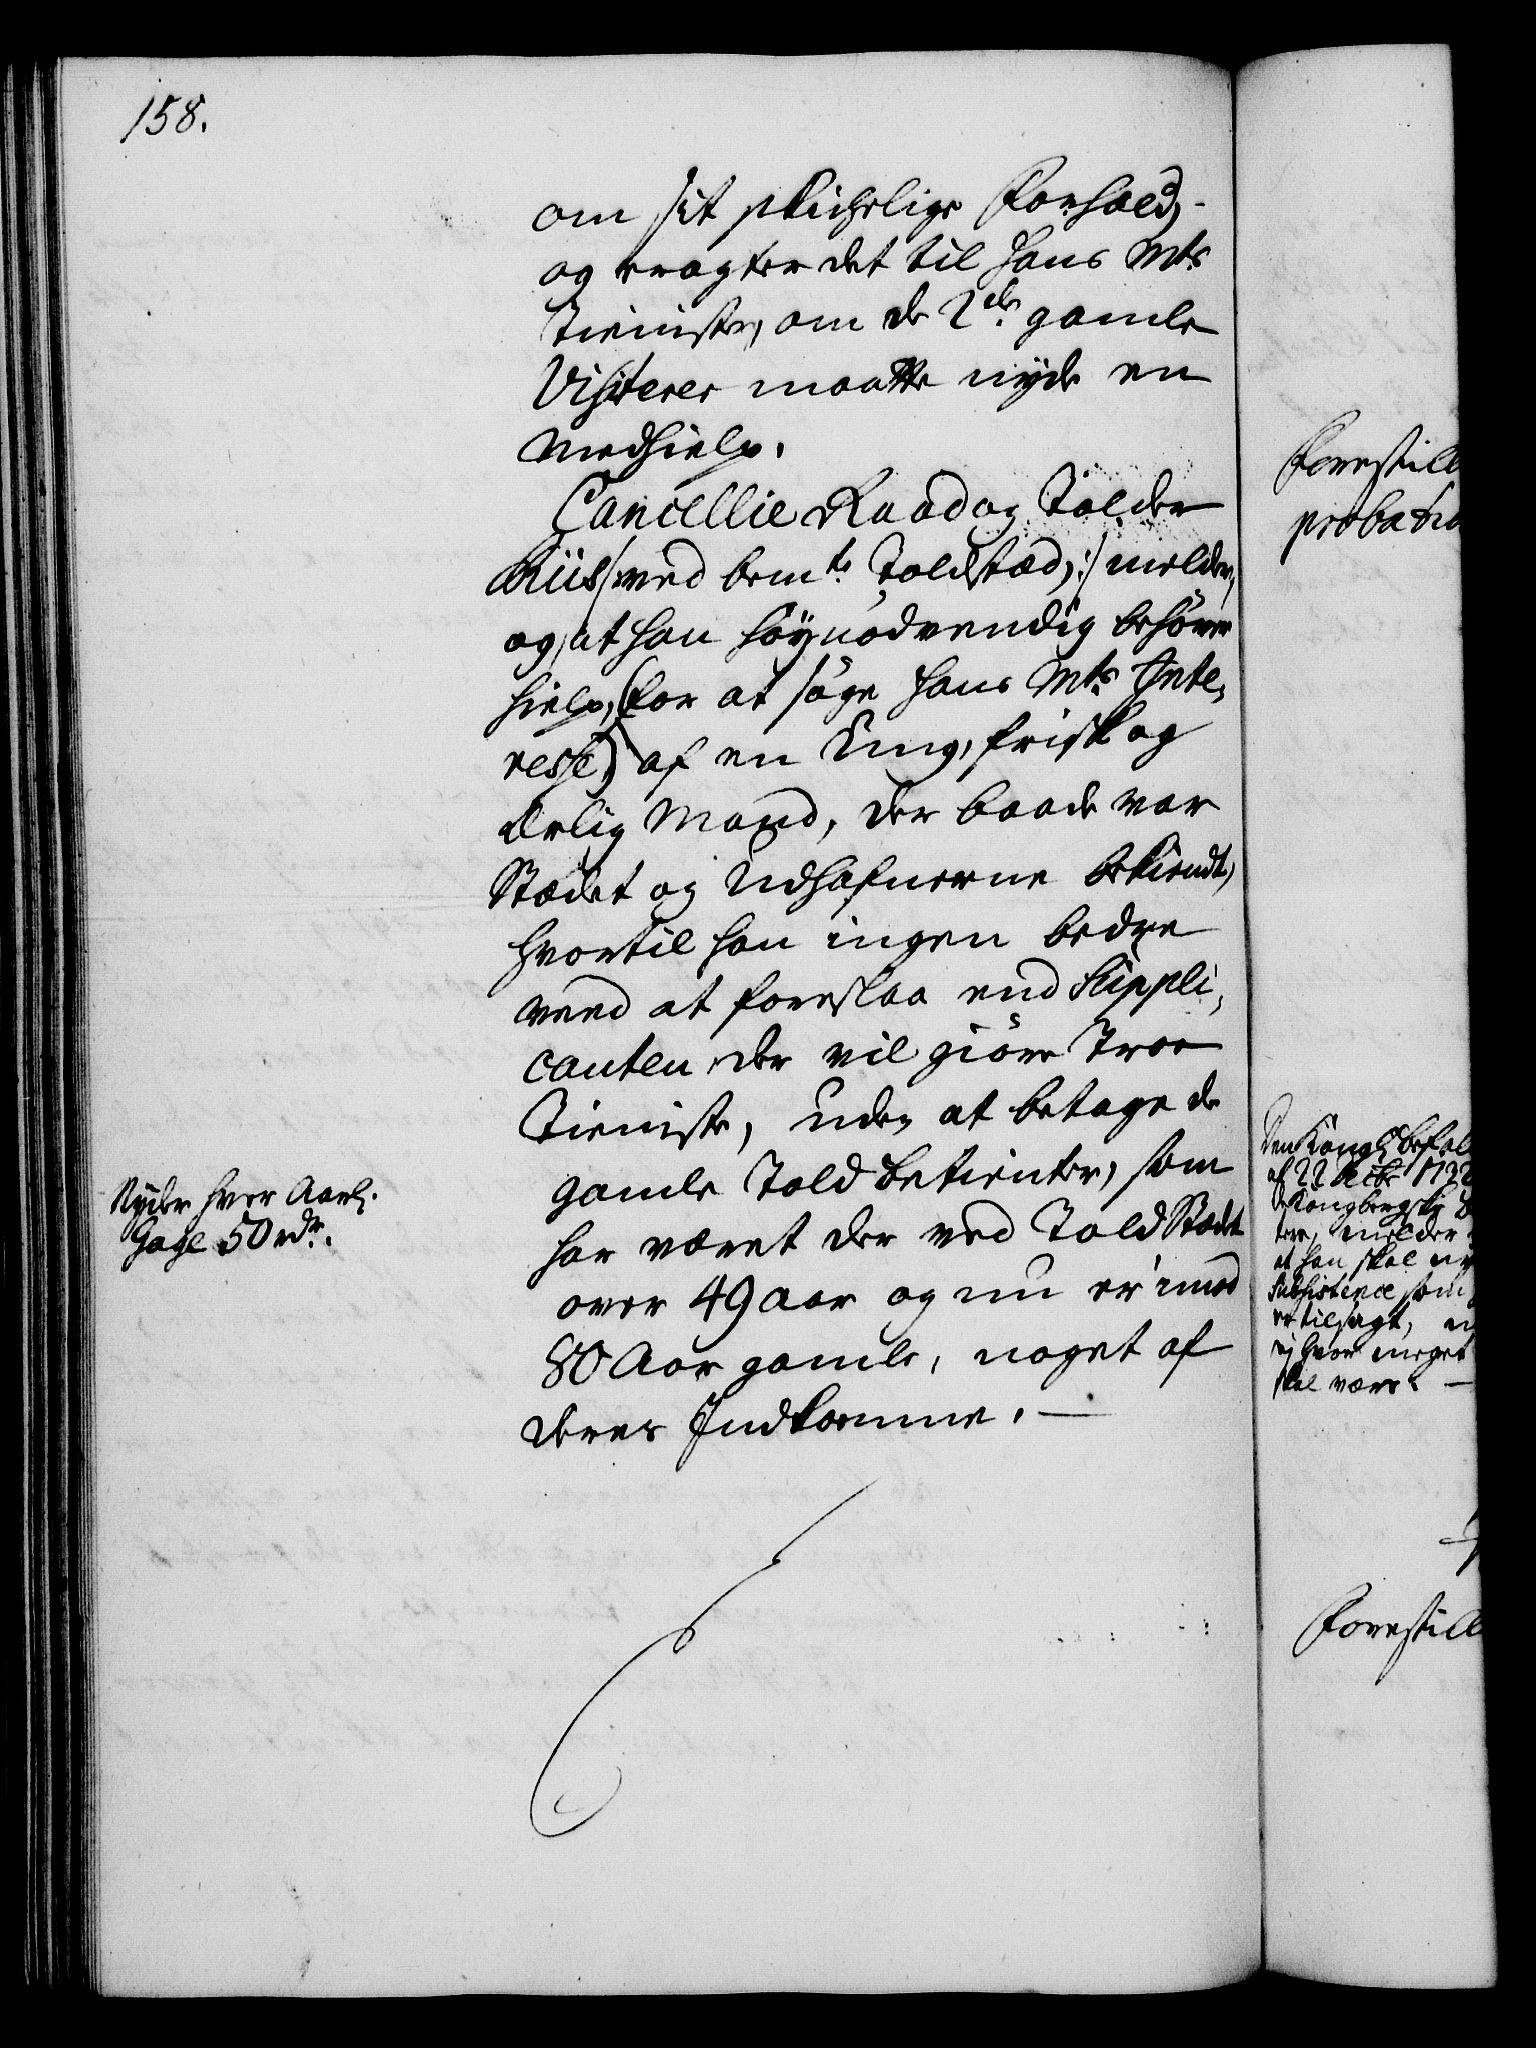 158.
om sit skichelige Forhold,
og eragter det til Hans Mts
Tieniste, om de 2de gamle
Visiterer maatte nyde en
Medhielp.
Cancellie Raad og Tolder
Riis /: ved bemte Toldstæd, :/ melder,
og, at han høynødvendig behøver
hielp, (for at søge Hans Mts Inte,
resse) af en Ung, frisk og
Ærlig Mand, der baade var
Stædet og Udhafnerne bekiendt,
hvortil han ingen bedre
veed at foreslaa end Suppli,
canten der vil giøre Troe
Tieniste, uden at betage de
gamle Told betienter, som
har været der ved Told Stædet
over 49 aar og nu er imod
80 Aar gamle, noget af
deres Indkomme. —
Nyder hver Aarl.
Gage 50 rdr.
Forestill
probatio
Den Kongl. befal
af 22 Decbr 173
Kongbergske
tere, melder
at han skal ny
Subsistence som
er tilsagt,
ey hvor meget
skal være. —
Forestill